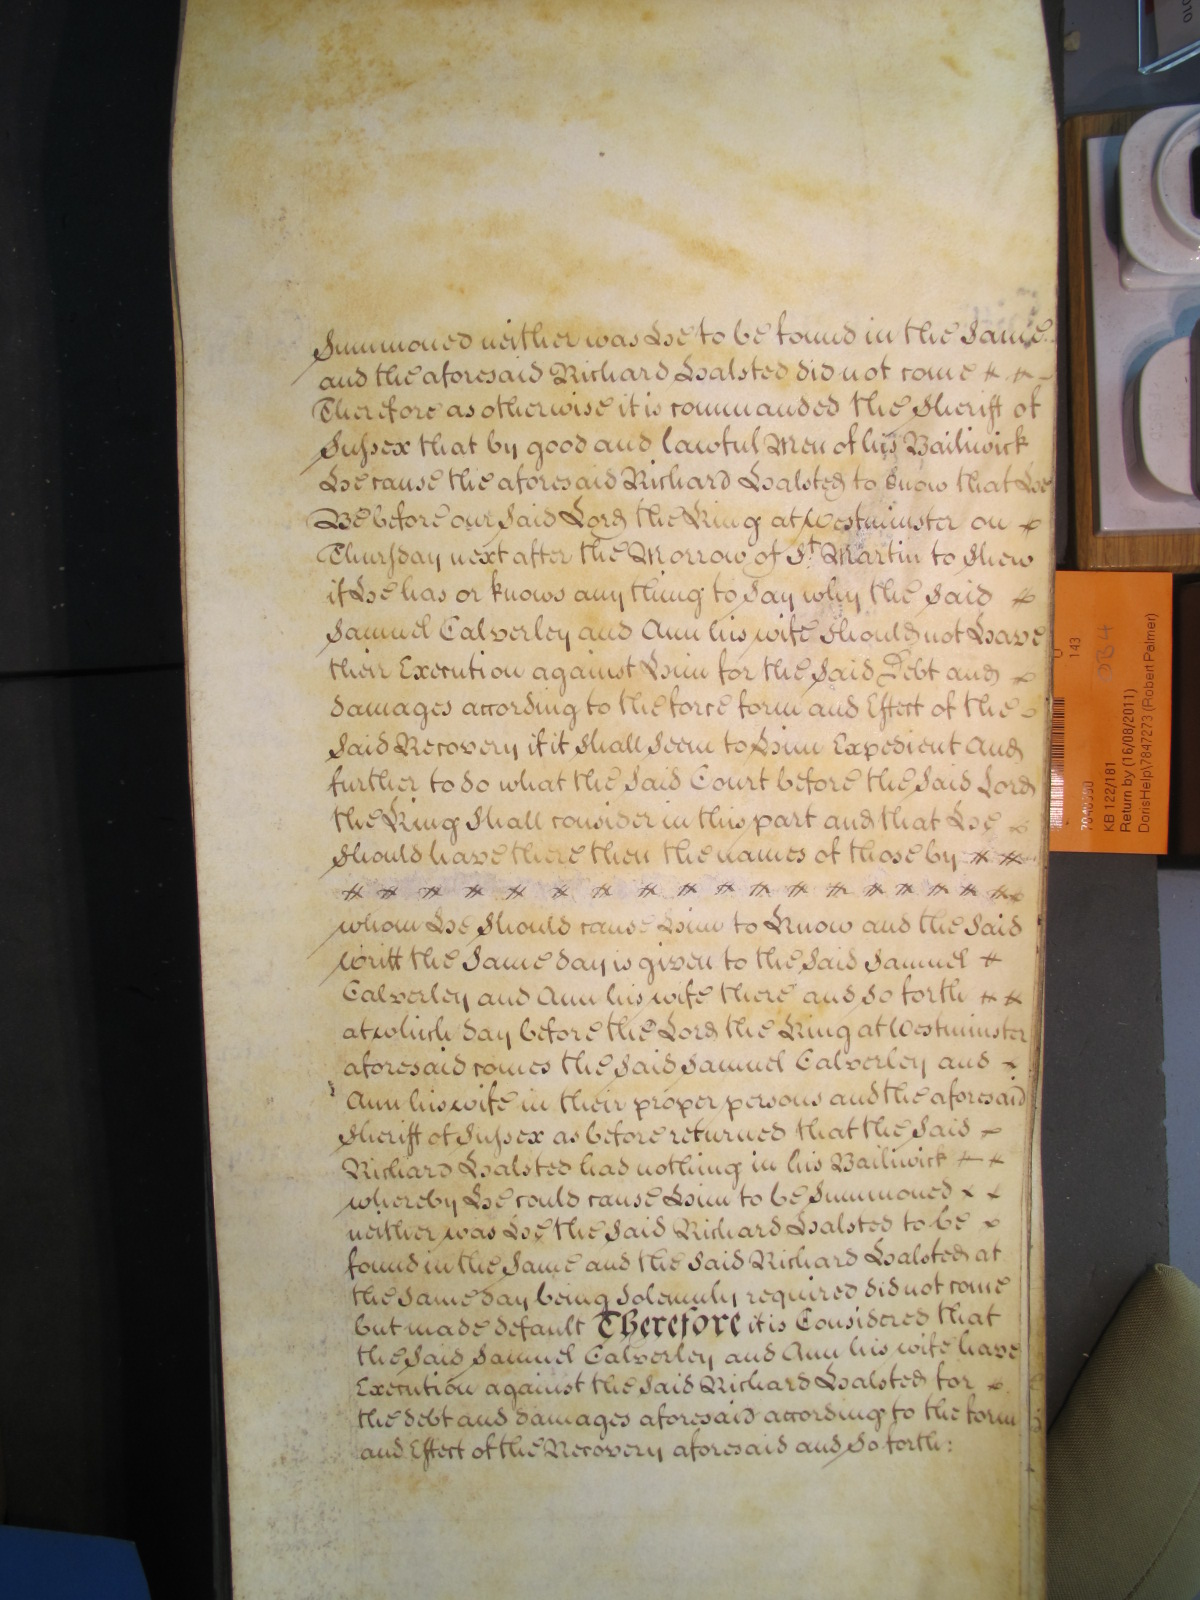 Summoned neither was He to be found in the Same
and the aforesaid Richard Halsted did not come
Therefore as otherwise it is commanded the Sheriff of
Sussex that by good and lawful Men of his Bailiwick
He cause the aforesaid Richard Halsted to know that He
Be before our Said Lord the King at Westminster on
Thursday next after the Morrow of St Martin to Shew
if He has or knows any thing to Say why the Said
Samuel Calverley and Ann his wife Should not Have
their Execution against Him for the Said Debt and
damages according to the force form and Effect of the
Said Recovery if it Shall Seem to Him Expedient And
further to do what the Said Court before the Said Lord
the King Shall consider in this part and that He
Should have there then the names of those by
whom He Should cause Him to Know and the Said
Writt the Same day is given to the Said Samuel
Calverley and Ann his wife there and So forth
at which day before the Lord the King at Westminster
aforesaid comes the Said Samuel Calverley and
Ann his wife in their proper persons and the aforesaid
Sheriff of Sussex as before returned that the Said
Richard Halsted had nothing in his Bailiwick
whereby He could cause Him to be Summoned
neither was He the Said Richard Halsted to be
found in the Same and the Said Richard Halsted at
the Same day being Solemnly required did not come
but made default Therefore it is Considered that
the Said Samuel Calverley and Ann his wife have
Execution against the Said Richard Halsted for
the debt and damages aforesaid according to the form
and Effect of the Recovery aforesaid and So forth:
143
KB 122/181
Return by (16/08/2011)
DorisHelp\7847273 (Robert Palmer)